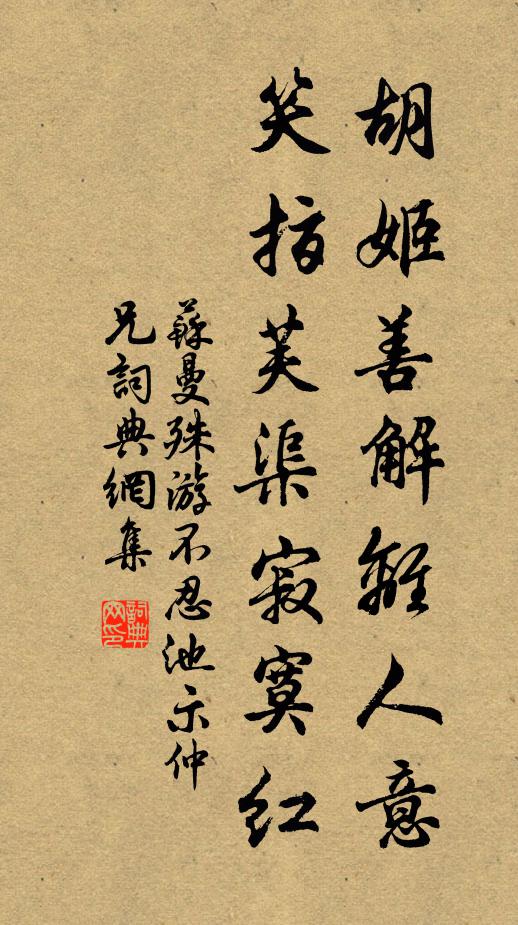 胡姬善解離人意
笑指芙渠寂寞紅
蘇曼殊游不忍池示仲
兄詞典網集
詞典
网印